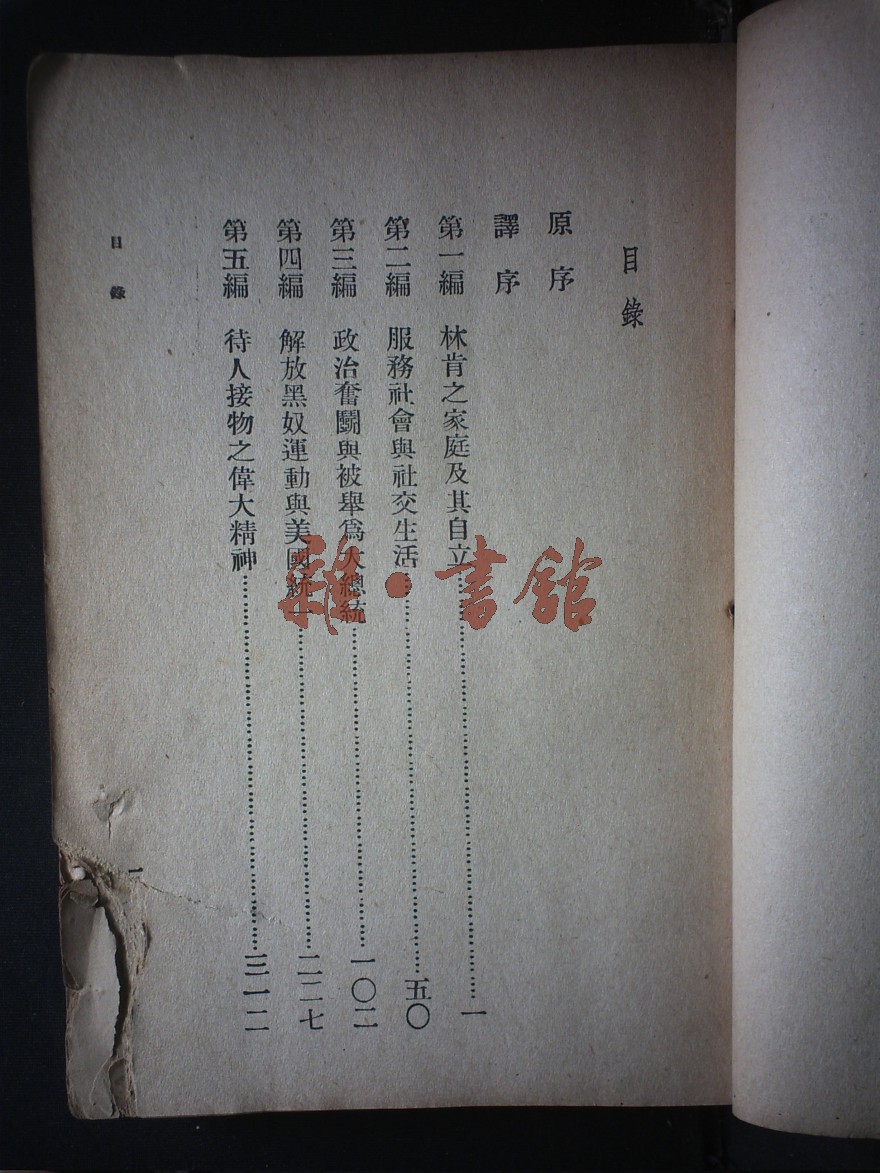 目錄
原序
譯序
第一編 林肯之家庭及其自立……一
第二編 服務社會與社交生活……五〇
第三編 政治奮鬭與被舉爲大總統……一〇二
第四編 解放黑奴運動與美國統一……二二七
第五編 待人接物之偉大精神……三一二
目錄
一
雜·書館